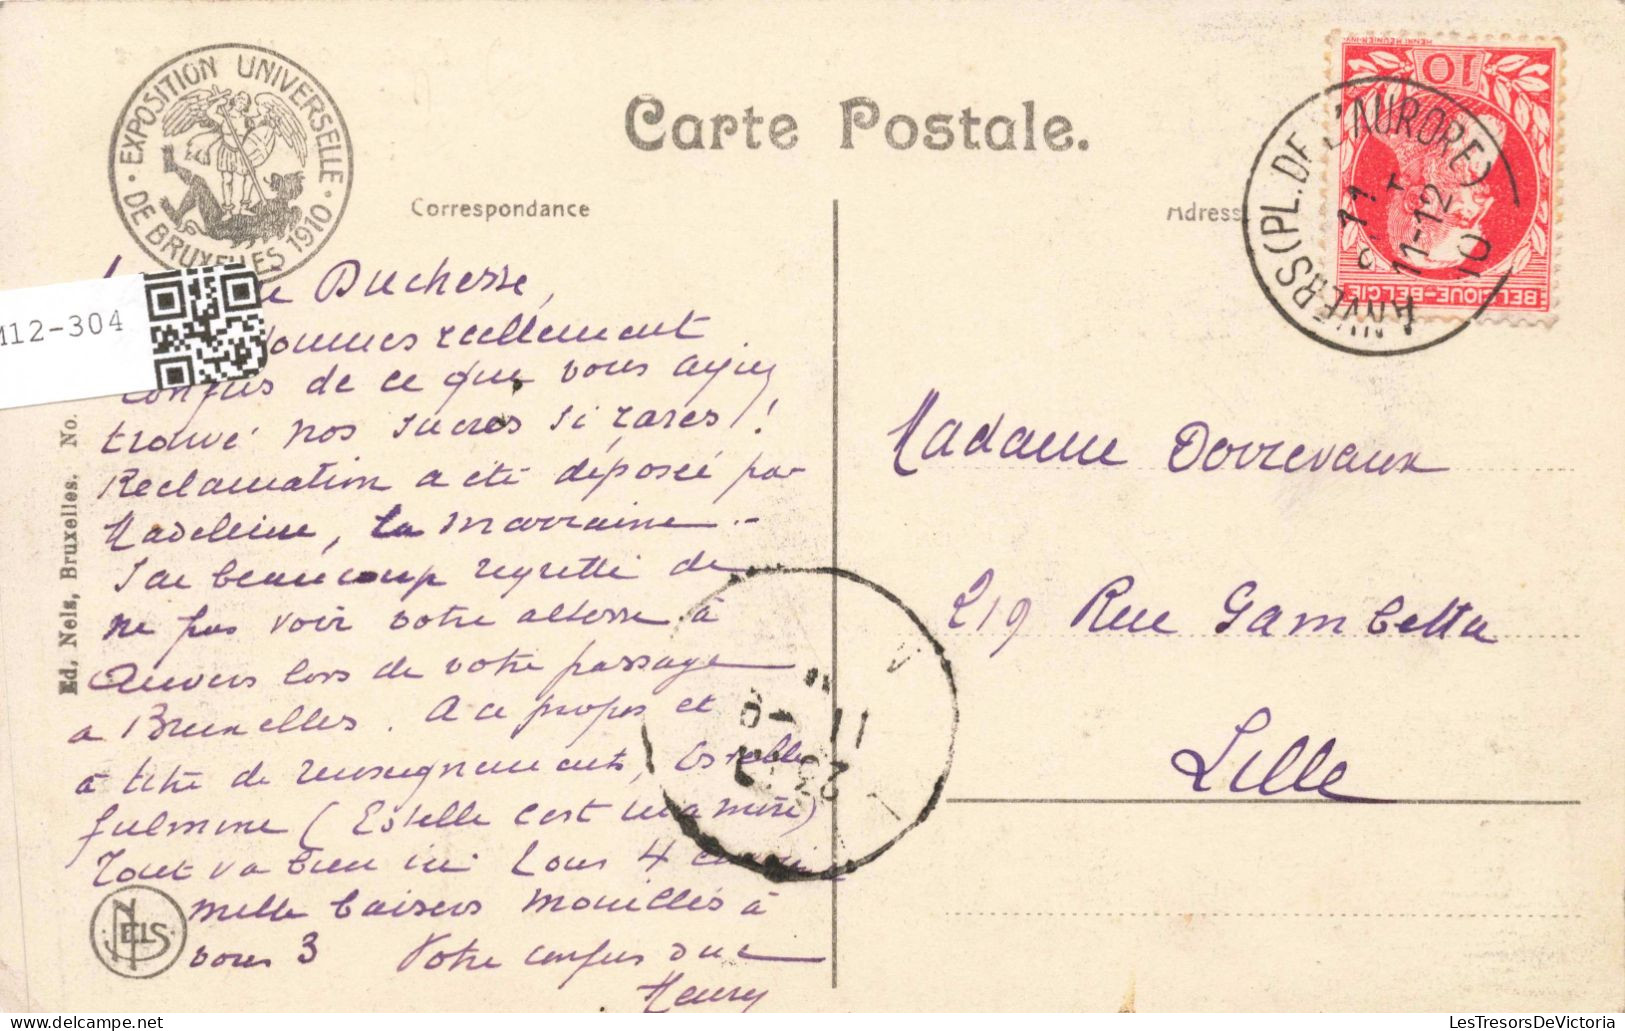 EXPOSITION UNIVERSELLE
DE BRUXELLES 1910
Carte Postale.
Correspondance
Adresse
10
HENRI MEUNIER-INV.
BELGIQUE-BELGIË
ANVERS (PL. DE L'AURORE)
11-12
10
M12-304
Ed. Nels, Bruxelles. No.
Duchesse,
sommes reellement
confus de ce que vous ayiez
trouvé nos sucres si rares!
Reclamation a été déposée par
Madeleine, la marraine.-
J'ai beaucoup regretté de
ne pas voir votre altesse à
Anvers lors de votre passage
a Bruxelles. A ce propos et
à titre de renseignements, Estelle
fulmine (Estelle c'est ma mère)
Tout va bien ici Tous 4
mille baisers mouillés à
vous 3 Votre confus duc
Henry
NELS
Madame Dorrevaux
219 Rue Gambetta
Lille
LesTresorsDeVictoria.com